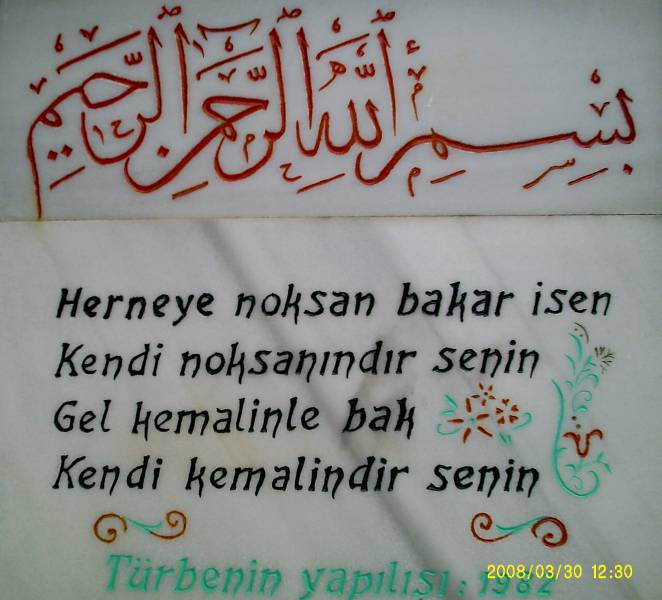 بِسْمِ اللهِ الرَّحْمٰنِ الرَّحِيمِ
Herneye noksan bakar isen
Kendi noksanındır senin
Gel kemalinle bak
Kendi kemalindir senin
Türbenin yapılışı : 1982
2008/03/30 12:30